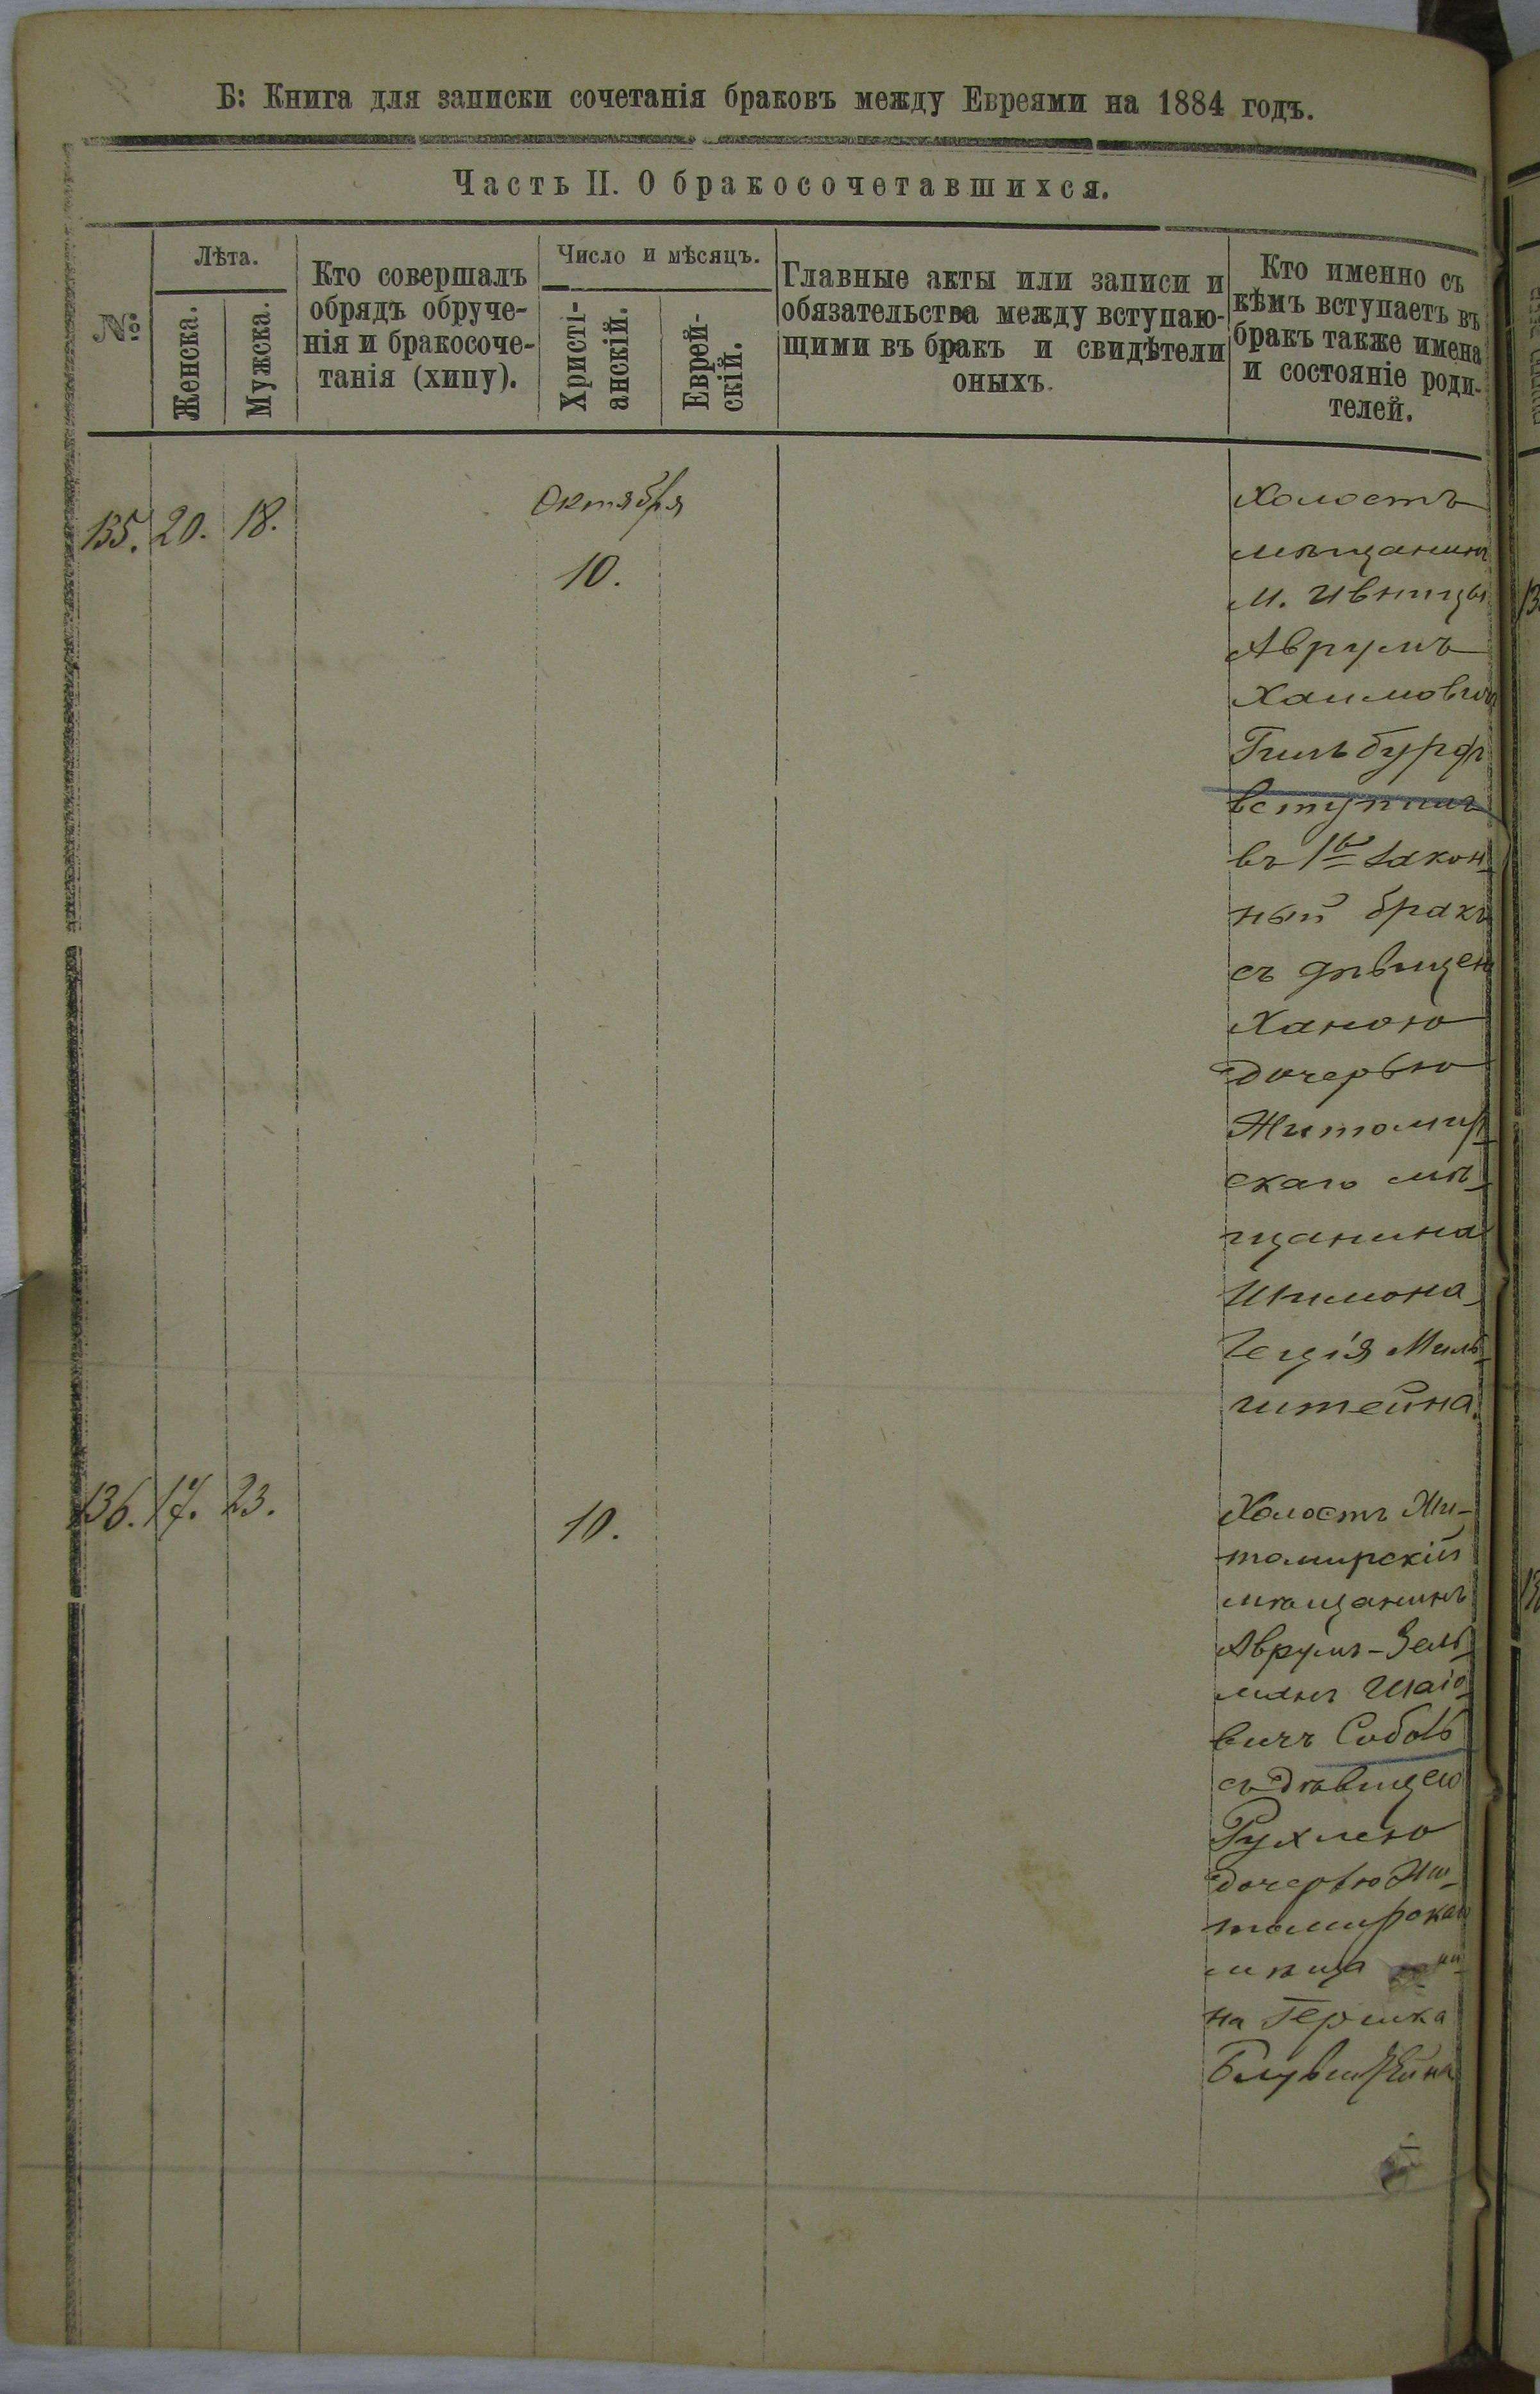 Б: Книга для записки сочетанія браковъ между Евреями на 1884 годъ.
Часть II. О бракосочетавшихся.
№
Лѣта.
Женска.
Мужска.
Кто совершалъ
обрядъ обруче-
нія и бракосоче-
танія (хипу).
Число и мѣсяцъ.
Христі-
анскій.
Еврей-
скій.
Главные акты или записи и
обязательства между вступаю-
щими въ бракъ и свидѣтели
оныхъ.
Кто именно съ
кѣмъ вступаетъ въ
бракъ также имена
и состояніе роди-
телей.
135. 20. 18.
Октября
10.
Холостъ
мѣщанинъ
м. Ивницы
Аврумъ
Хаимовичъ
Гильбурф
вступилъ
въ 1й закон-
ный бракъ
съ дѣвицею
Ханою
дочерью
Житомир-
скаго мѣ-
щанина
Шимона
Миль-
штейна.
136. 17. 23.
10.
Холостъ Жи-
томирскій
мѣщанинъ
Аврумъ-Зель-
манъ Шаіо-
вичъ Соболь
съ дѣвицею
Рухлею
дочерью Жи-
томирскаго
мѣща ни-
на Гершка
Блувштейна